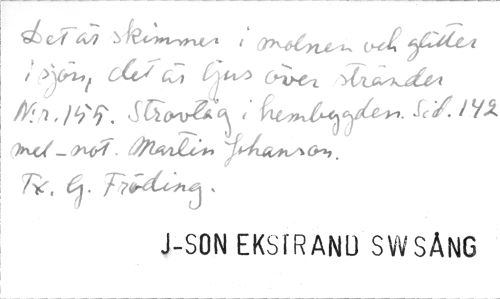 Det är skimmer i molnen och glitter
i sjön, det är ljus över stränder
N:r. 155. Strovtåg i hembygden. Sid. 142
mel-not. Martin Johanson.
Tx. G. Fröding.
J-SON EKSTRAND SWSÅNG